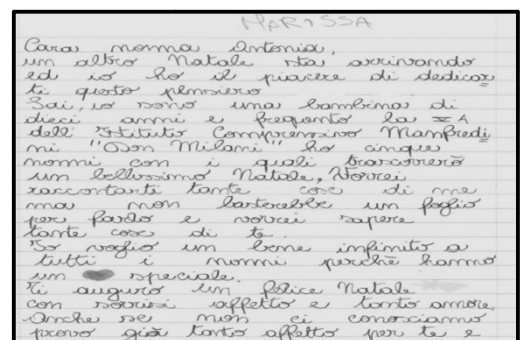 MARISSA
Cara nonna Antonia,
un altro Natale sta arrivando
ed io ho il piacere di dedicar
ti questo pensiero
Sai, io sono una bambina di
dieci anni e frequento la A
dell' Istituto Comprensivo Manfredi
ni "Don Milani" ho cinque
nonni con i quali trascorrerò
un bellissimo Natale, Vorrei
raccontarti tante cose di me
ma non basterebbe un foglio
per farlo e vorrei sapere
tante cose di te.
Io voglio un bene infinito a
tutti i nonni perchè hanno
un speciale.
Ti auguro un felice Natale
con sorrisi affetto e tanto amore.
Anche se non ci conosciamo
provo già tanto affetto per te e